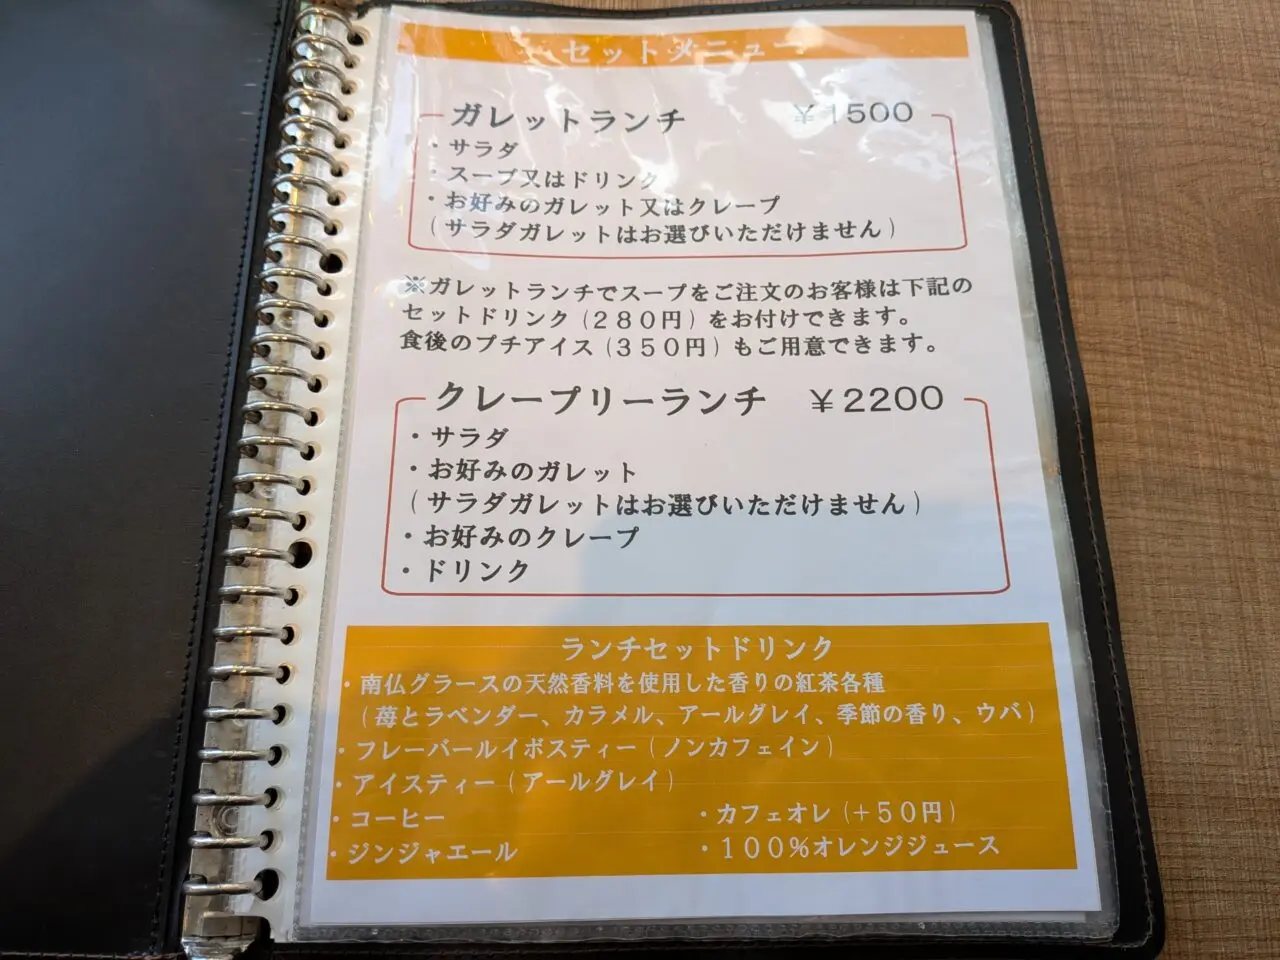 セットメニュー
ガレットランチ ￥1500
・サラダ
・スープ又はドリンク
・お好みのガレット又はクレープ
（サラダガレットはお選びいただけません）
※ガレットランチでスープをご注文のお客様は下記の
セットドリンク（２８０円）をお付けできます。
食後のプチアイス（３５０円）もご用意できます。
クレープリーランチ ￥2200
・サラダ
・お好みのガレット
（サラダガレットはお選びいただけません）
・お好みのクレープ
・ドリンク
ランチセットドリンク
・南仏グラースの天然香料を使用した香りの紅茶各種
（苺とラベンダー、カラメル、アールグレイ、季節の香り、ウバ）
・フレーバールイボスティー（ノンカフェイン）
・アイスティー（アールグレイ）
・コーヒー ・カフェオレ（＋５０円）
・ジンジャエール ・１００％オレンジジュース